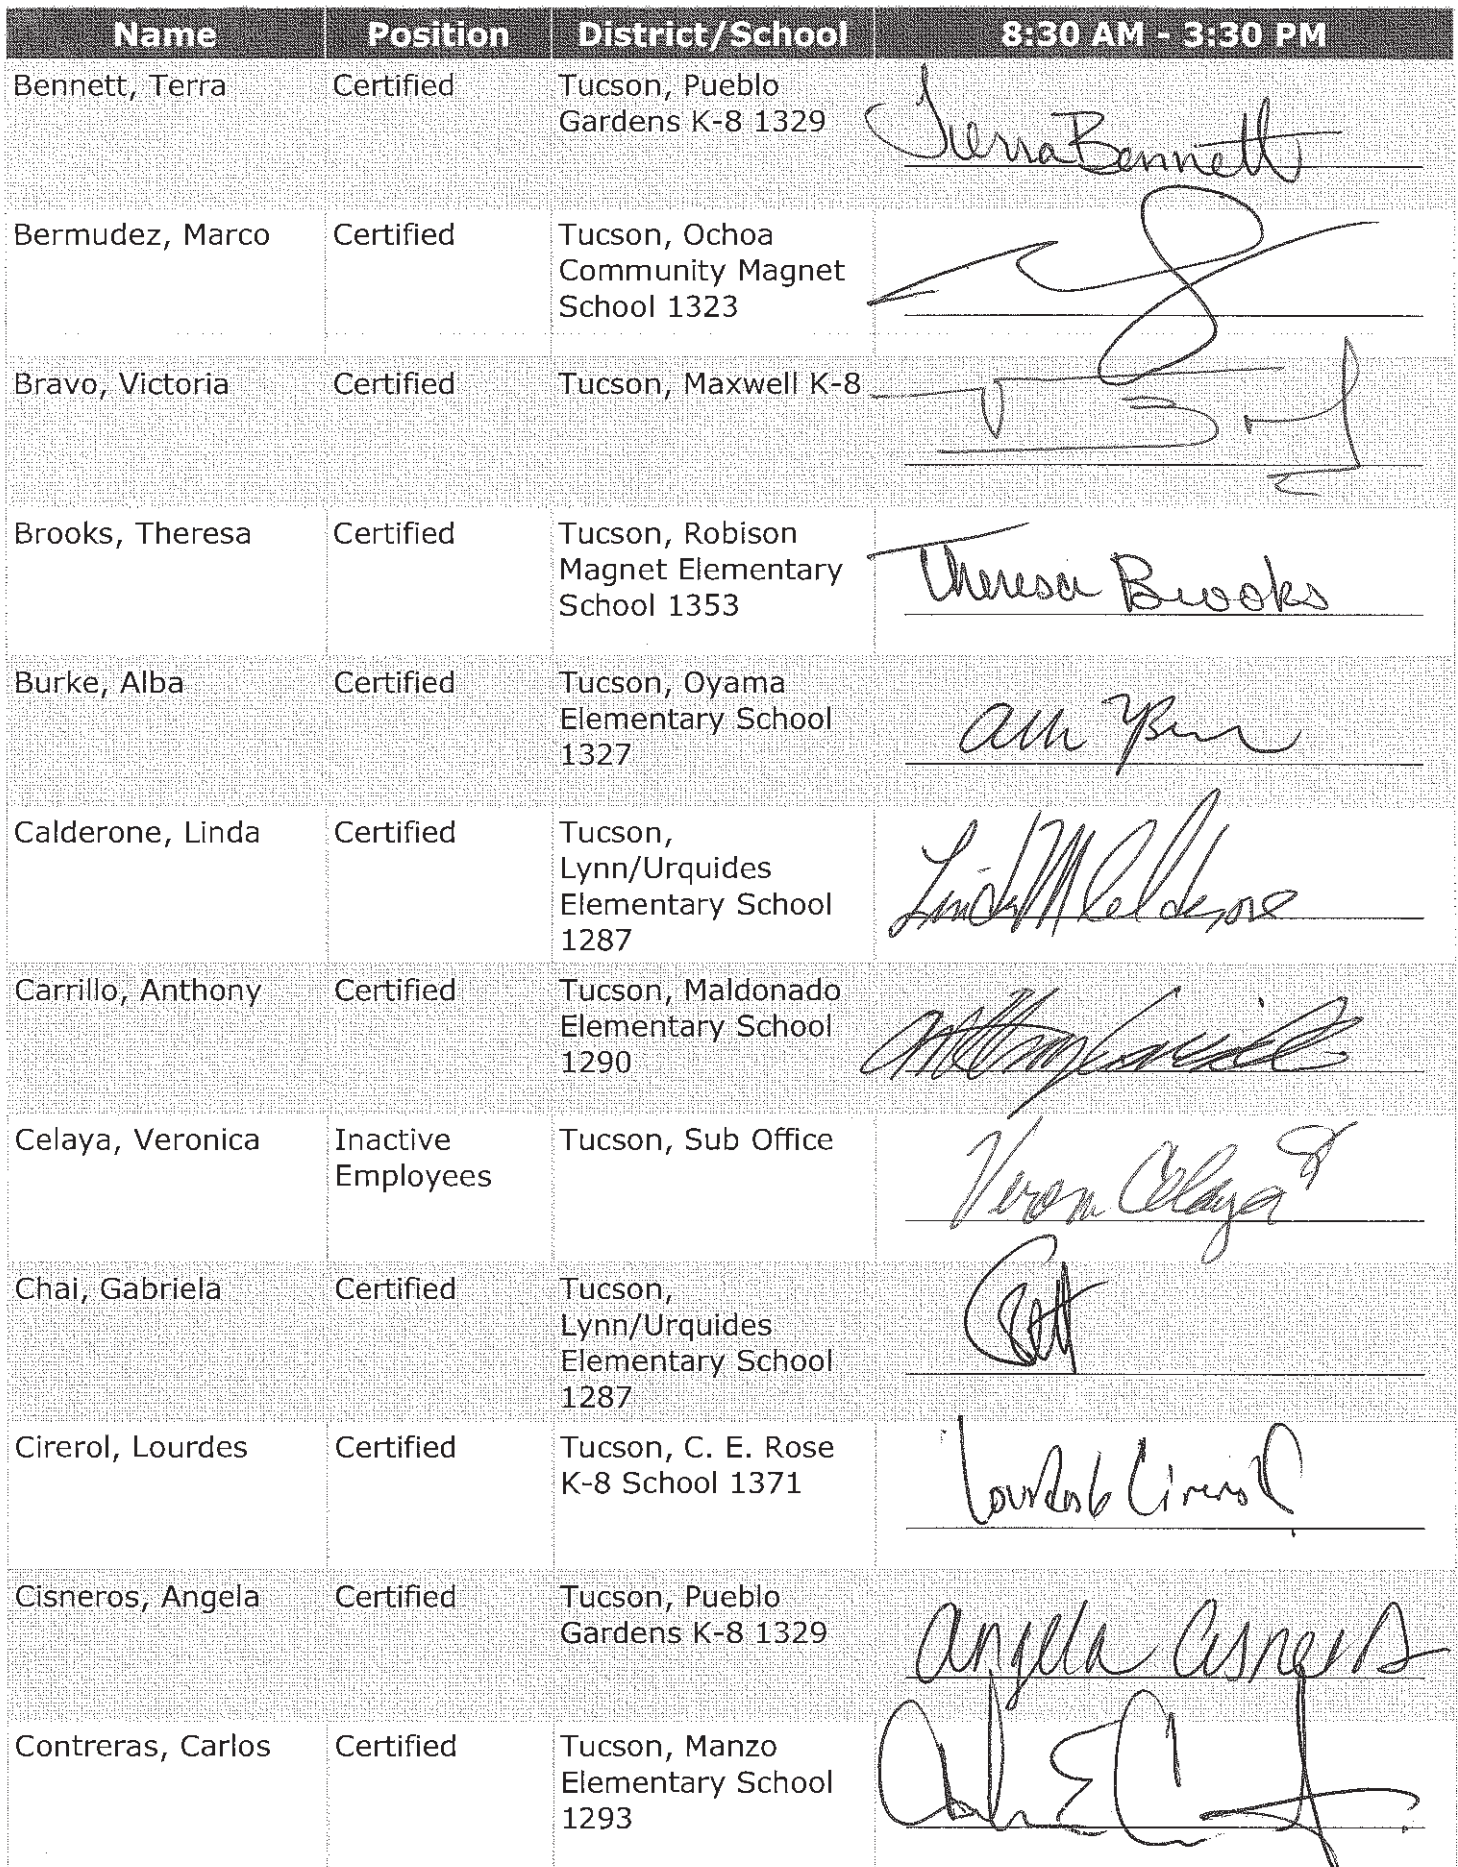 Name Position District/School 8:30 AM - 3:30 PM
Bennett, Terra Certified Tucson, Pueblo
Gardens K-8 1329
Tierra Bennett
Bermudez, Marco Certified Tucson, Ochoa
Community Magnet
School 1323
Bravo, Victoria Certified Tucson, Maxwell K-8
Brooks, Theresa Certified Tucson, Robison
Magnet Elementary
School 1353
Theresa Brooks
Burke, Alba Certified Tucson, Oyama
Elementary School
1327
Calderone, Linda Certified Tucson,
Lynn/Urquides
Elementary School
1287
Linda M Calderone
Carrillo, Anthony Certified Tucson, Maldonado
Elementary School
1290
Anthony Carrillo
Celaya, Veronica Inactive Tucson, Sub Office
Employees
Celaya
Chai, Gabriela Certified Tucson,
Lynn/Urquides
Elementary School
1287
Cirerol, Lourdes Certified Tucson, C. E. Rose
K-8 School 1371
Lourdes Cirerol
Cisneros, Angela Certified Tucson, Pueblo
Gardens K-8 1329
Angela Cisneros
Contreras, Carlos Certified Tucson, Manzo
Elementary School
1293